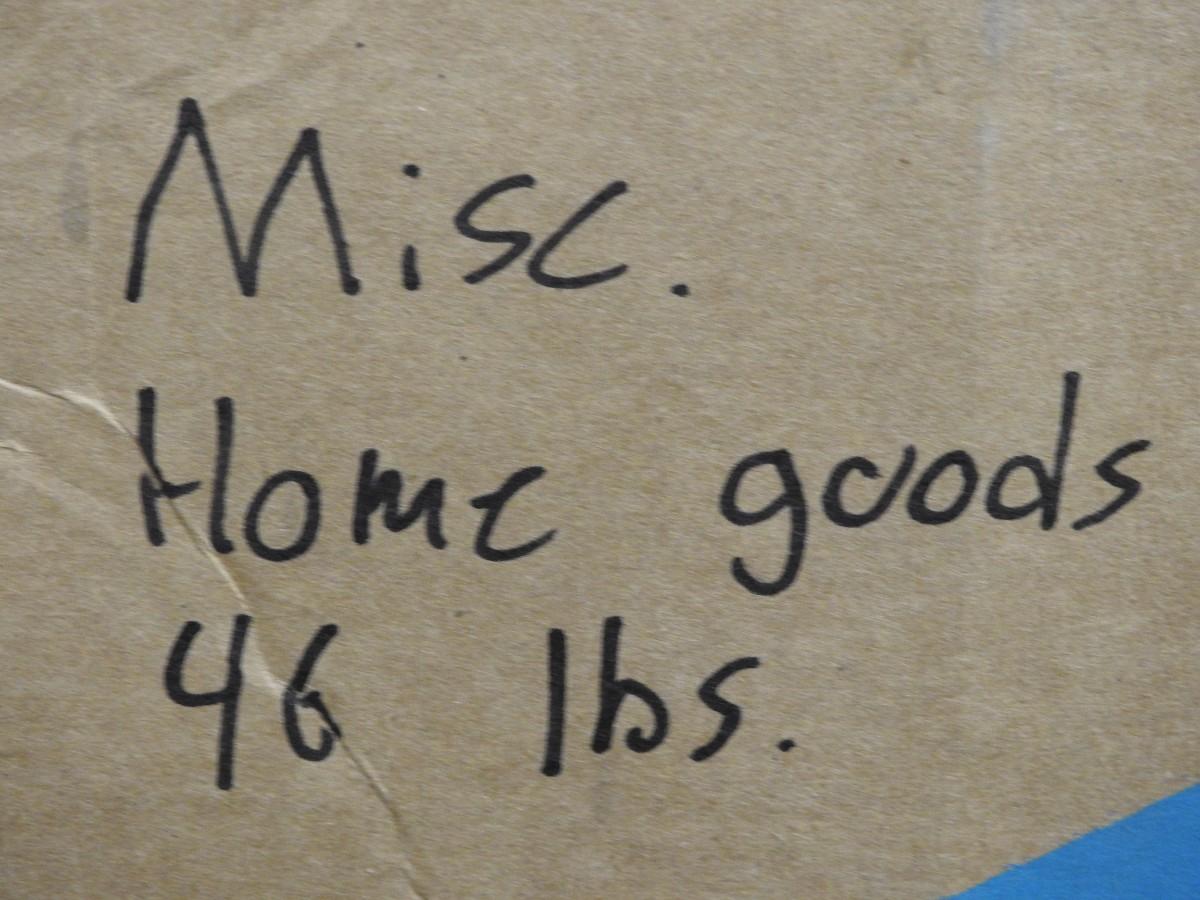 Misc.
Home goods
46 lbs.